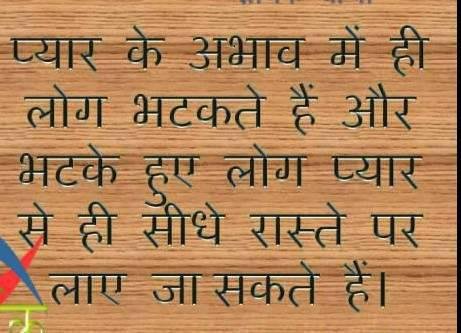 प्यार के अभाव में ही
लोग भटकते हैं और
भटके हुए लोग प्यार
से ही सीधे रास्ते पर
लाए जा सकते हैं।